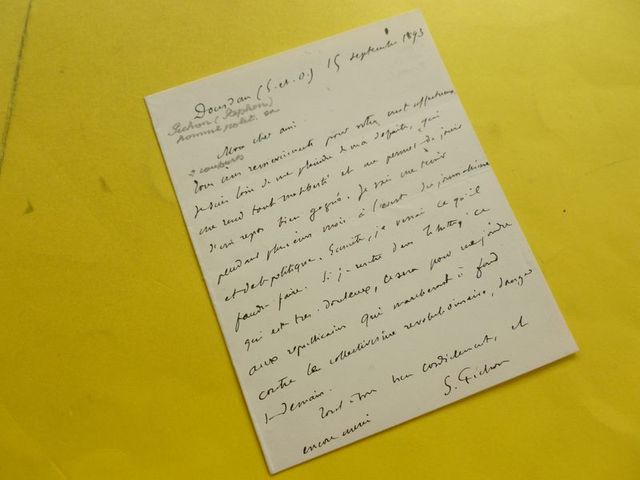 Dourdan (S. et. O.) 15 septembre 1893
Pichon (Stephen)
homme polit.
Mon cher ami
Tous mes remerciements pour votre mot affectueux
Je suis loin de me plaindre de ma défaite, qui
me rend toute ma liberté et me permet de jouir
d'un repos bien gagné. Je vais me tenir
pendant plusieurs mois à l'écart du journalisme
et de la politique. Ensuite, je verrai ce qu'il
faudra faire. Si je rentre dans ce
qui est très douteux, ce sera pour me joindre
aux républicains qui marcheront à fond
contre le collectivisme révolutionnaire, danger
de demain.
Tout à vous bien cordialement, et
encore merci
S. Pichon